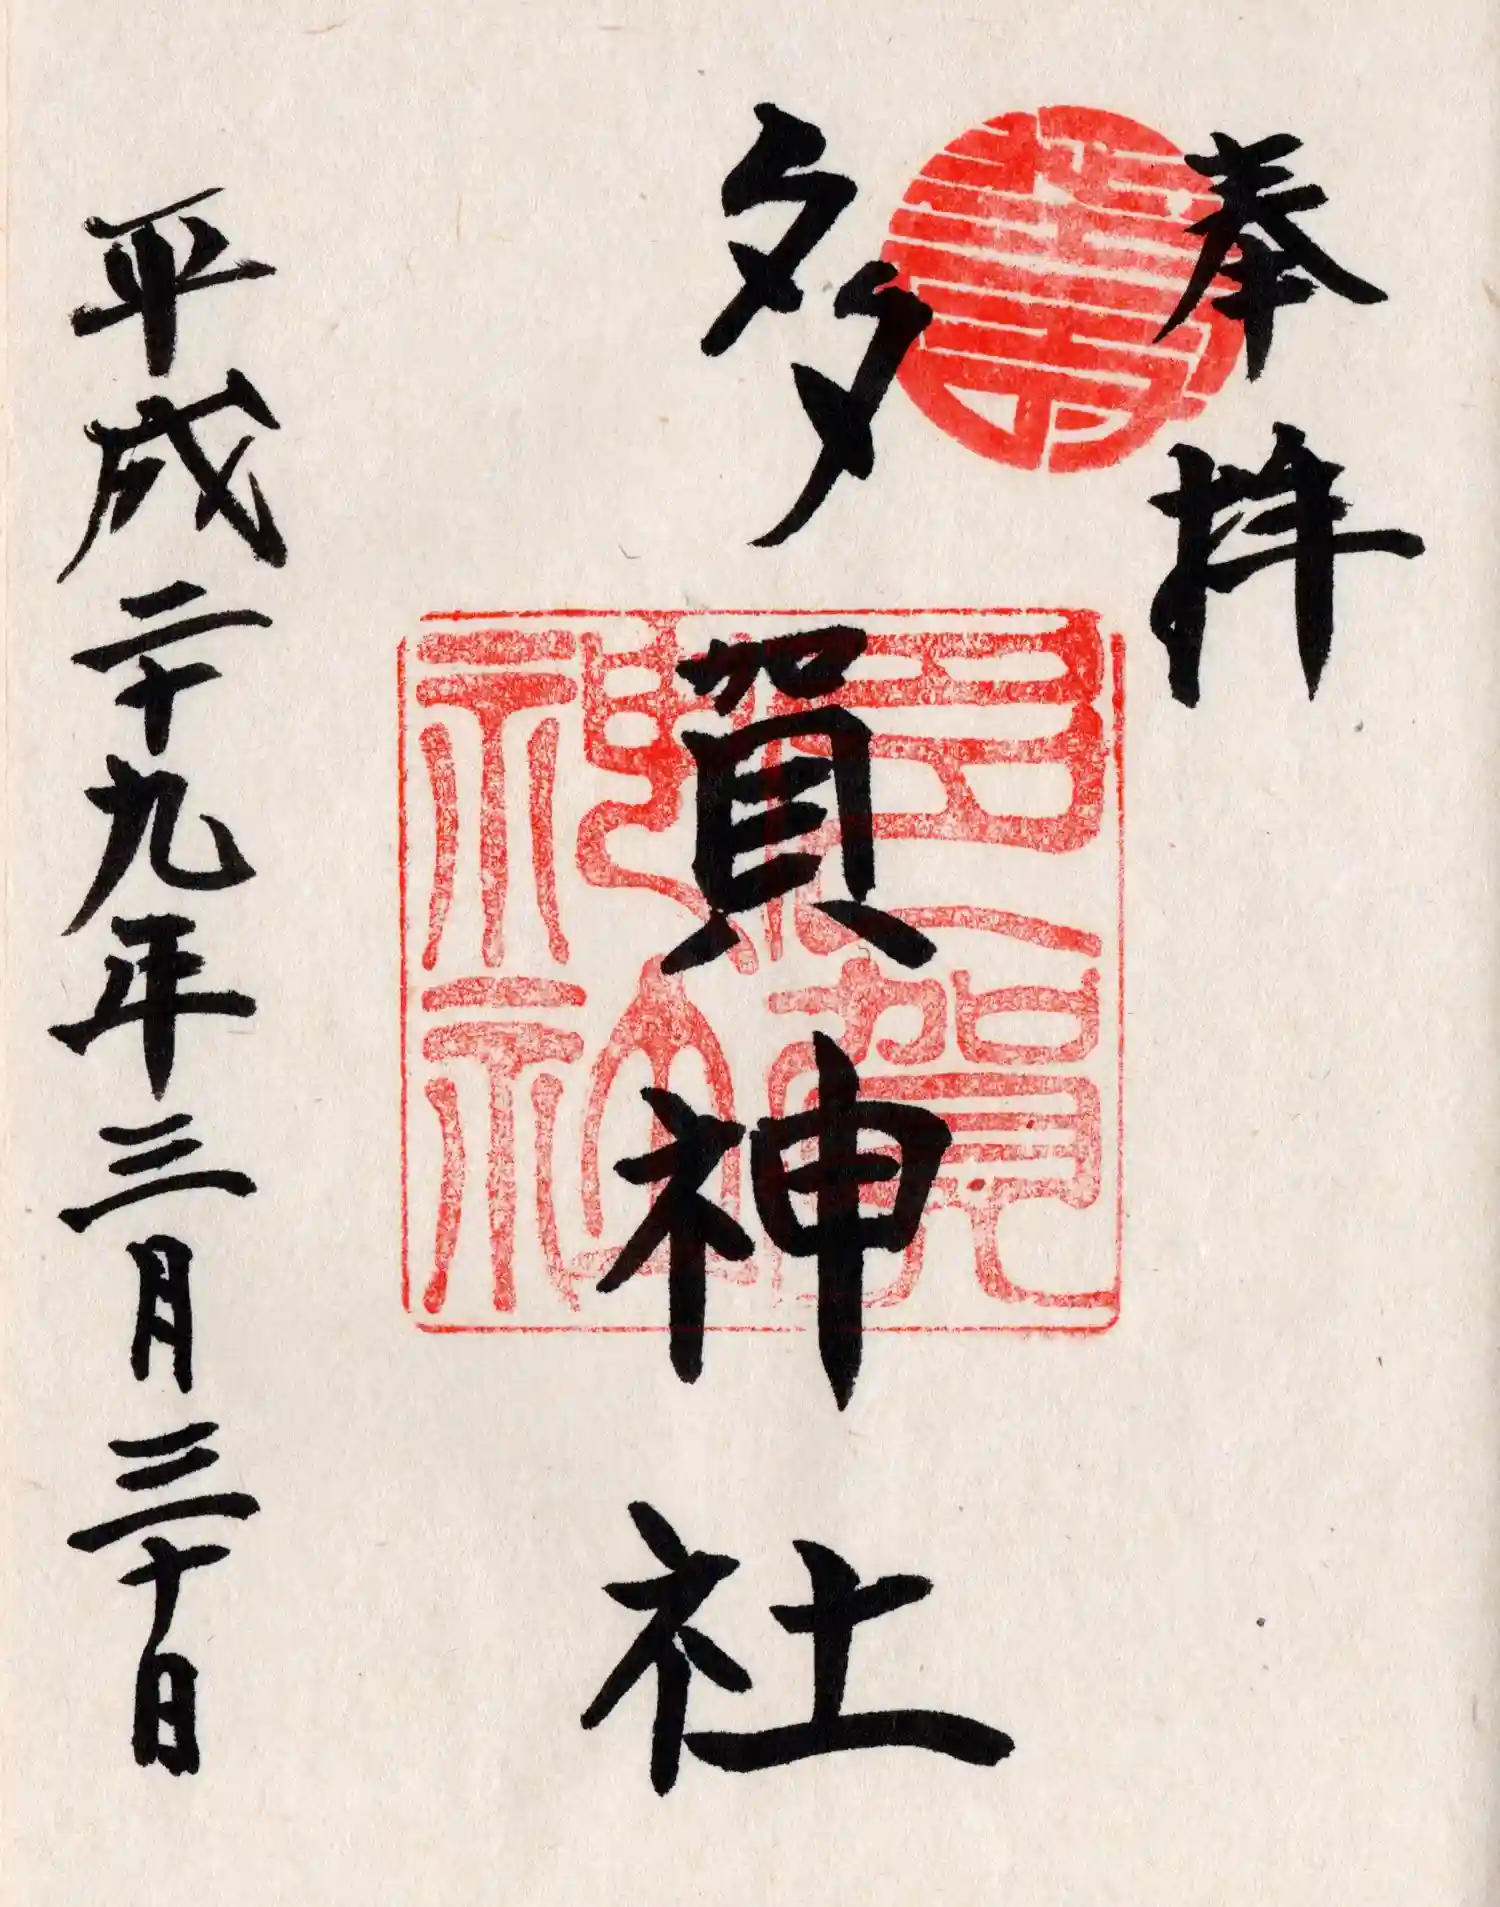 奉拝
多賀神社
多賀神社
平成二十九年三月三十日